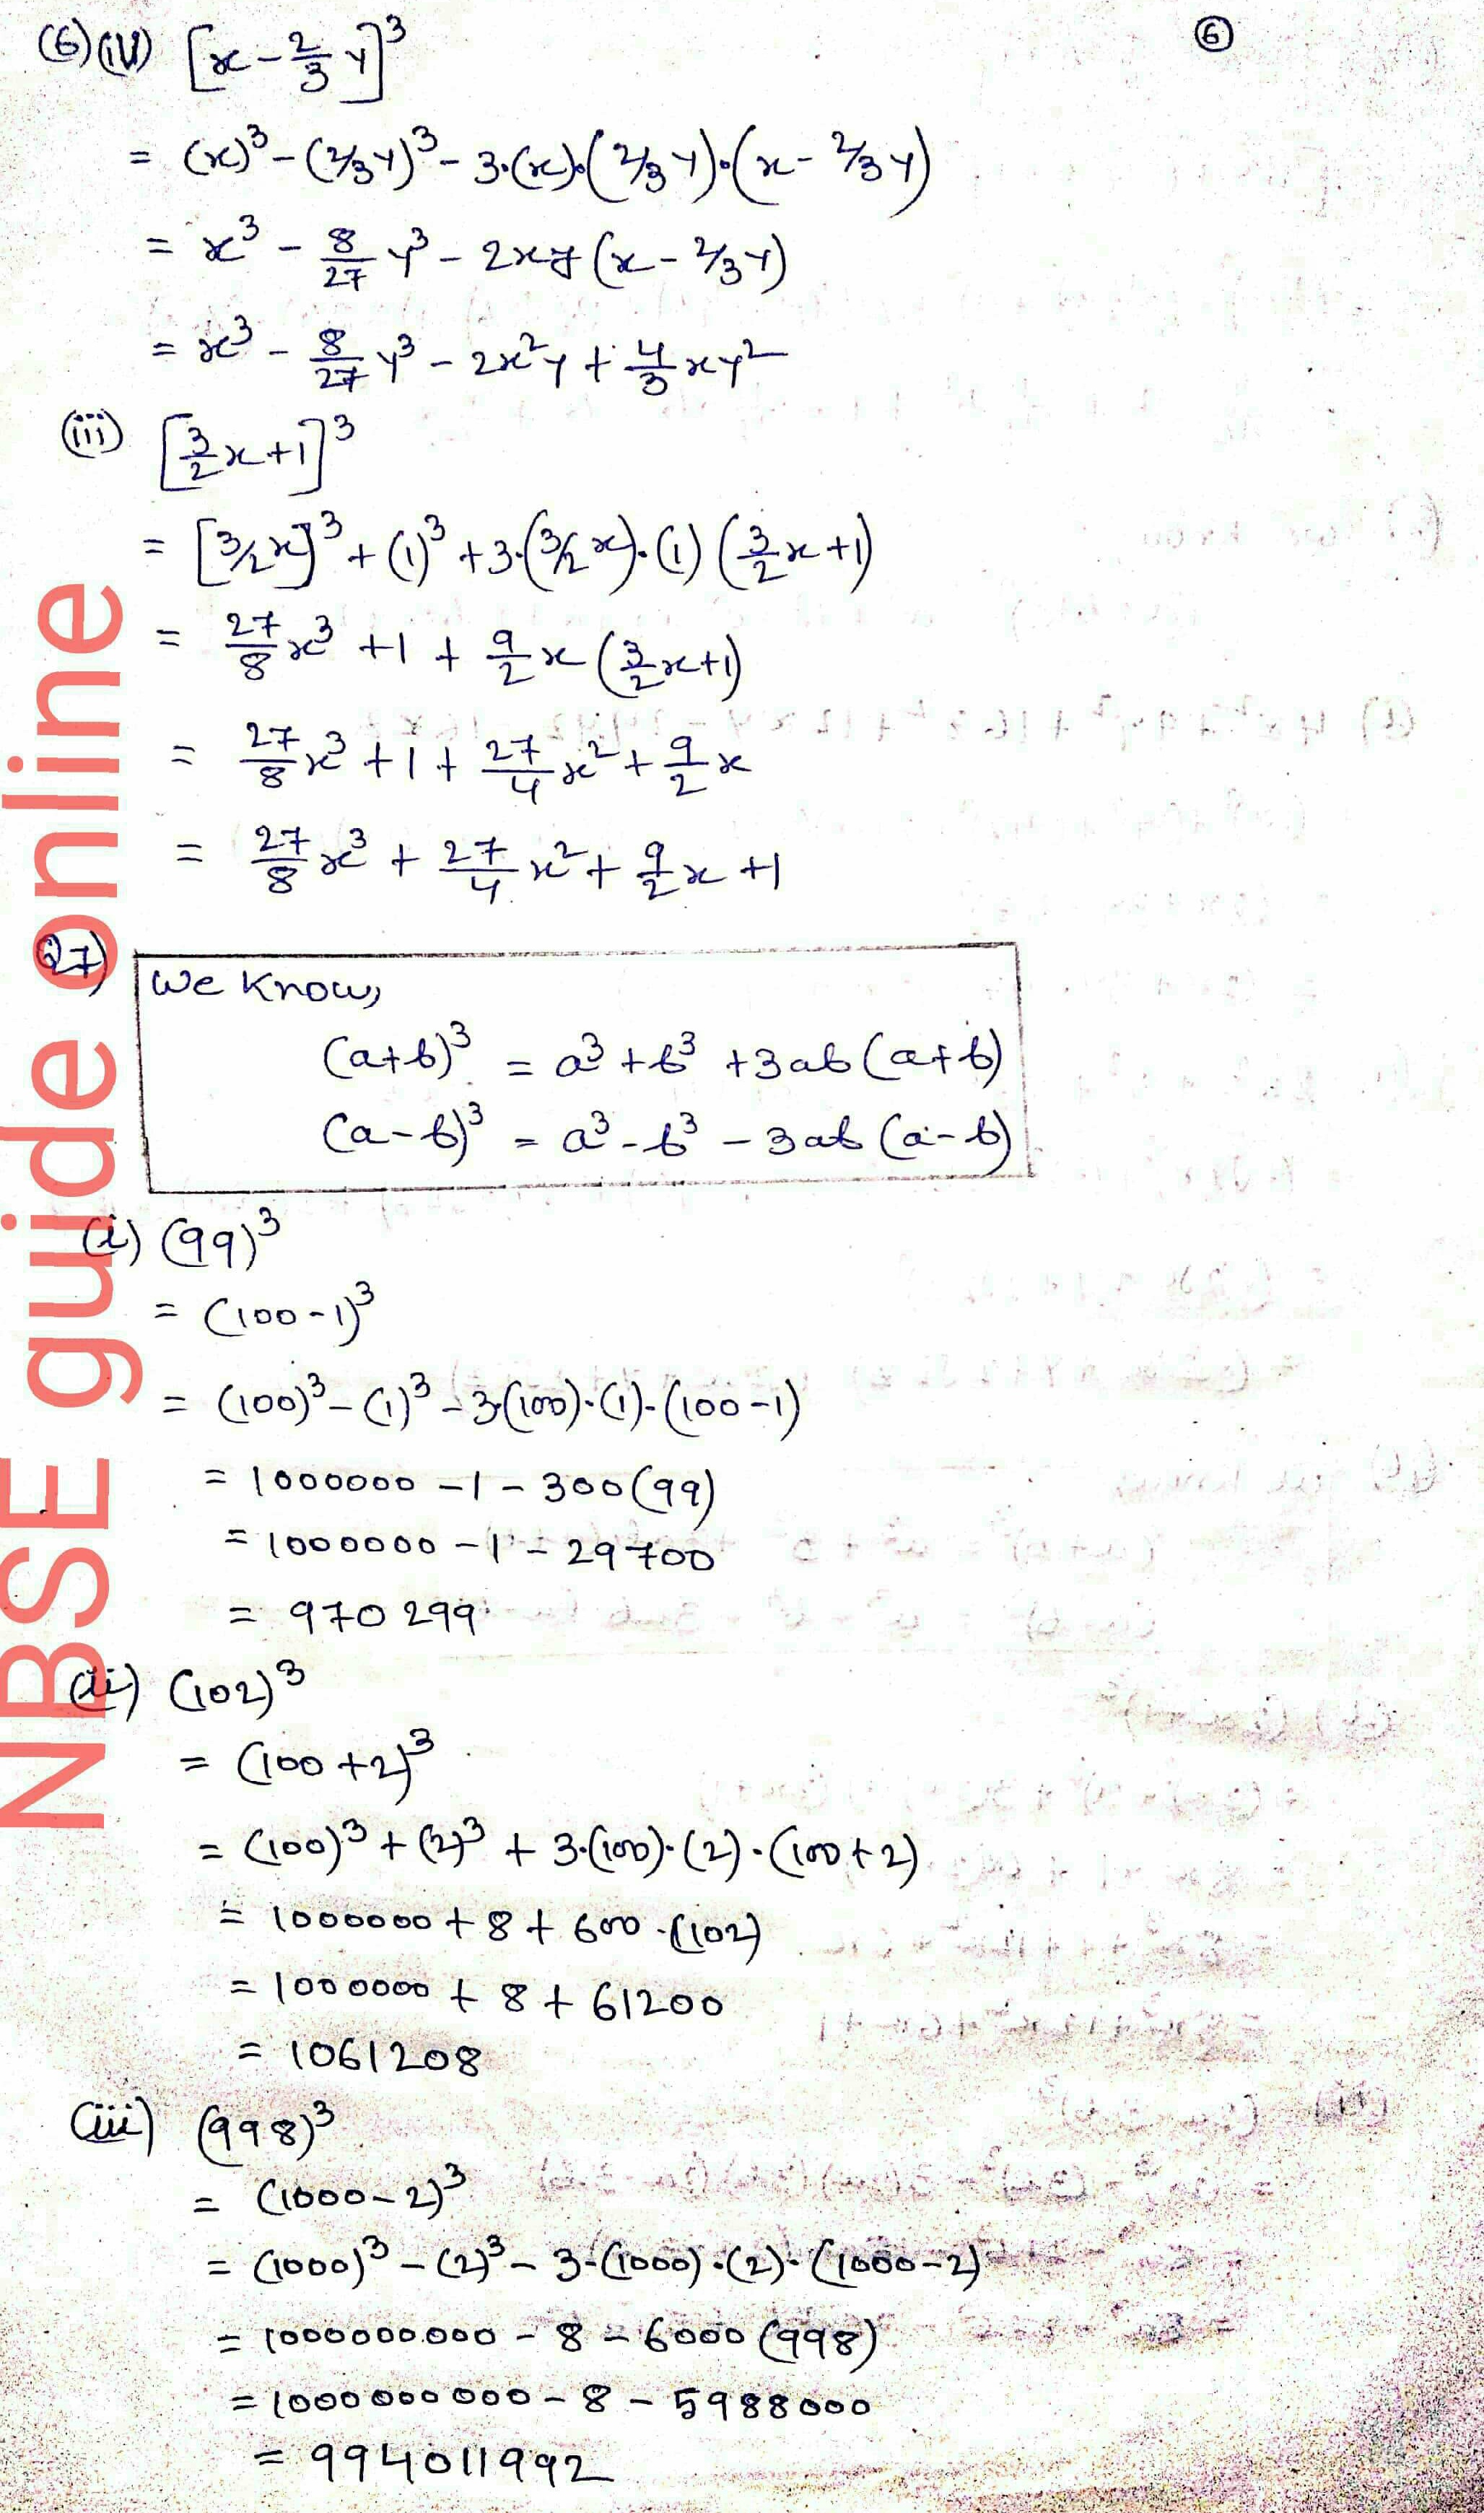 (6)(iv) [x - 2/3 y]³
⑥
= (x)³ - (2/3 y)³ - 3·(x)·(2/3 y)·(x - 2/3 y)
= x³ - 8/27 y³ - 2xy (x - 2/3 y)
= x³ - 8/27 y³ - 2x²y + 4/3 xy²
(iii) [3/2 x + 1]³
= [3/2 x]³ + (1)³ + 3·(3/2 x)·(1) (3/2 x + 1)
= 27/8 x³ + 1 + 9/2 x (3/2 x + 1)
= 27/8 x³ + 1 + 27/4 x² + 9/2 x
= 27/8 x³ + 27/4 x² + 9/2 x + 1
Q7)
We know,
(a+b)³ = a³ + b³ + 3ab (a+b)
(a-b)³ = a³ - b³ - 3ab (a-b)
(i) (99)³
= (100-1)³
= (100)³ - (1)³ - 3·(100)·(1)·(100-1)
= 1000000 - 1 - 300(99)
= 1000000 - 1 - 29700
= 970299
(ii) (102)³
= (100+2)³
= (100)³ + (2)³ + 3·(100)·(2)·(100+2)
= 1000000 + 8 + 600·(102)
= 1000000 + 8 + 61200
= 1061208
(iii) (998)³
= (1000-2)³
= (1000)³ - (2)³ - 3·(1000)·(2)·(1000-2)
= 1000000000 - 8 - 6000(998)
= 1000000000 - 8 - 5988000
= 994011992
NBSE guide online